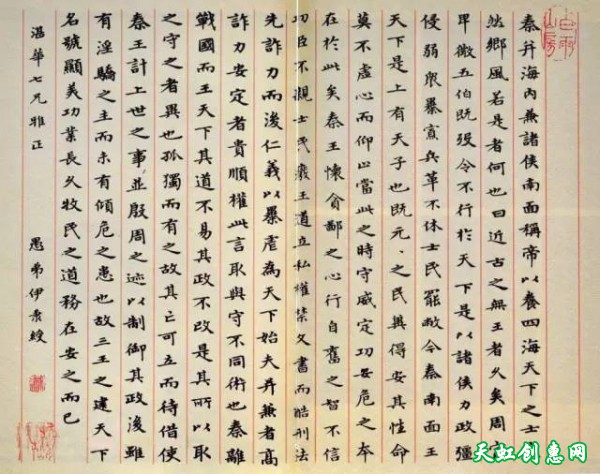 秦并海内兼諸侯南面稱帝以養四海天下之士
然鄉風若是者何也曰近古之無王者久矣周室
卑微五伯既殁令不行於天下是以諸侯力政彊
侵弱眾暴寡兵革不休士民罷敝今秦南面王
天下是上有天子也既元〻之民冀得安其性命
莫不虛心而仰上當此之時守威定功安危之本
在於此矣秦王懷貪鄙之心行自奮之智不信
功臣不親士民廢王道立私權禁文書而酷刑法
先詐力而後仁義以暴虐為天下始夫并兼者高
詐力安定者貴順權此言取與守不同術也秦離
戰國而王天下其道不易其政不改是其所以取
之守之者異也孤獨而有之故其亡可立而待借使
秦王計上世之事並殷周之迹以制御其政後雖
有淫驕之主而未有傾危之患也故三王之建天下
名號顯美功業長久牧民之道務在安之而已
湛華七兄雅正 愚弟伊秉綬
天虹创惠网